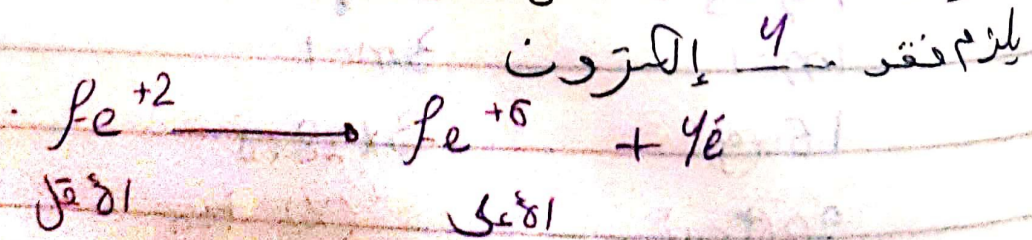 يلزم فقد 4 إلكترون
fe +2 → fe +6 + 4é
الأقل الأعلى